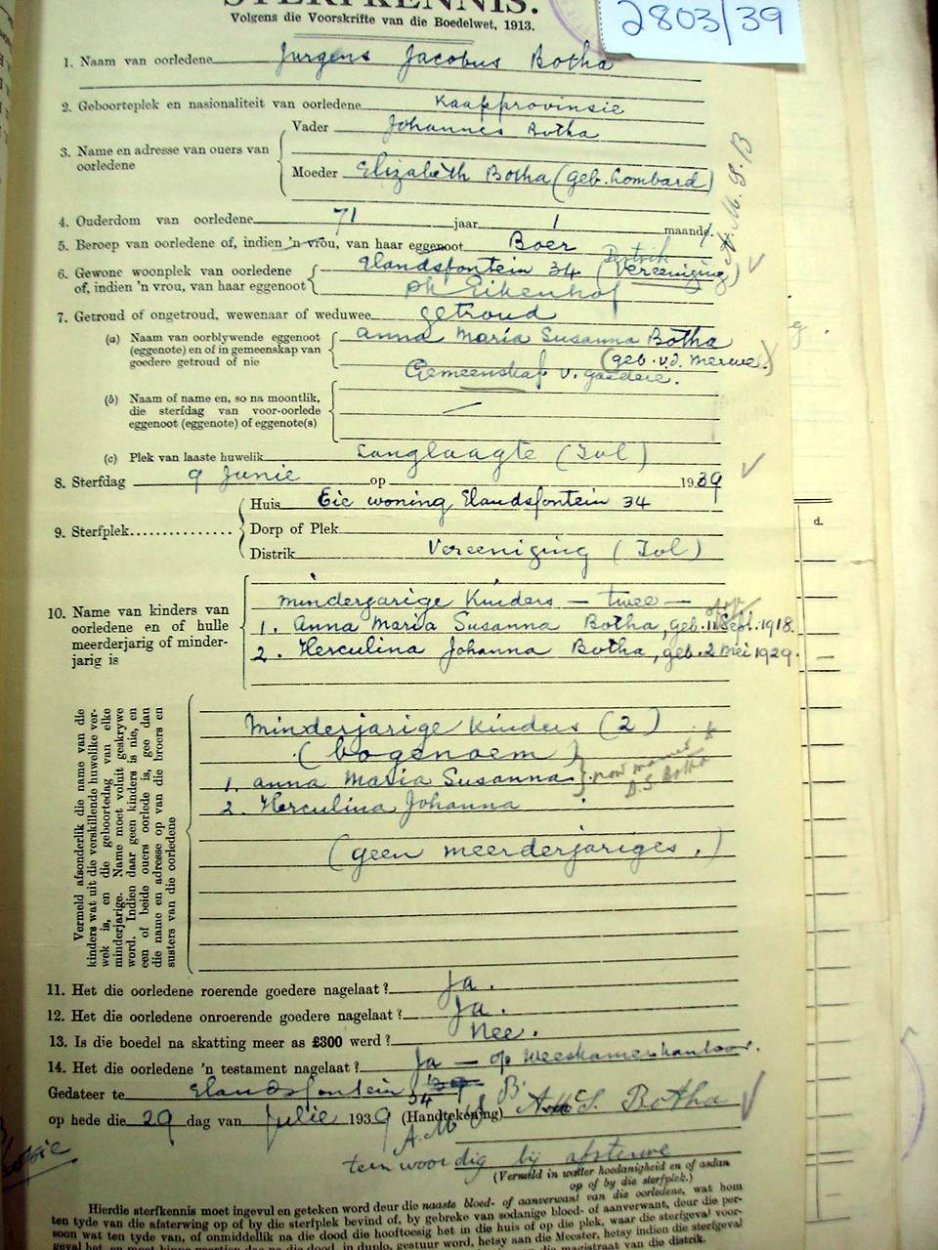 STERFKENNIS.
2803/39
Volgens die Voorskrifte van die Boedelwet, 1913.
1. Naam van oorledene Jurgens Jacobus Botha
2. Geboorteplek en nasionaliteit van oorledene Kaapprovinsie
3. Name en adresse van ouers van oorledene
Vader Johannes Botha
Moeder Elizabeth Botha (geb. Lombard)
4. Ouderdom van oorledene 71 jaar 1 maande.
A.M.S.B
5. Beroep van oorledene of, indien 'n vrou, van haar eggenoot Boer
6. Gewone woonplek van oorledene of, indien 'n vrou, van haar eggenoot
Distrik
Elandsfontein 34 (Vereeniging)
pk Eikenhof
7. Getroud of ongetroud, wewenaar of weduwee getroud
(a) Naam van oorblywende eggenoot
(eggenote) en of in gemeenskap van
goedere getroud of nie
Anna Maria Susanna Botha
(geb. v.d. Merwe.)
Gemeenskaf v. goedere.
(b) Naam of name en, so na moontlik,
die sterfdag van voor-oorlede
eggenoot (eggenote) of eggenote(s)
—
(c) Plek van laaste huwelik Langlaagte (Tvl)
8. Sterfdag 9 Junie op 1939
9. Sterfplek
Huis Eie woning Elandsfontein 34
Dorp of Plek
Distrik Vereeniging (Tvl)
10. Name van kinders van
oorledene en of hulle
meerderjarig of minder-
jarig is
minderjarige Kinders — twee —
1. Anna Maria Susanna Botha, geb. 11 Sept. 1918.
2. Herculina Johanna Botha, geb. 2 Mei 1929.
Vermeld afsonderlik die name van die
kinders wat uit die verskillende huwelike ver-
wek is, en die geboortedag van elke
minderjarige. Name moet voluit geskrywe
word. Indien daar geen kinders is nie, en
een of beide ouers oorlede is, gee dan
die name en adresse op van die broers en
susters van die oorledene
Minderjarige Kinders (2)
(bogenoem)
1. Anna Maria Susanna
now married to
Botha
2. Herculina Johanna
(geen meerderjariges.)
11. Het die oorledene roerende goedere nagelaat? Ja.
12. Het die oorledene onroerende goedere nagelaat? Ja.
13. Is die boedel na skatting meer as £300 werd? Nee.
14. Het die oorledene 'n testament nagelaat? Ja — op Weeskamerkantoor.
Gedateer te Elandsfontein 34
op hede die 29 dag van Julie 1939 (Handtekening) A.M.S. Botha
A.M.S.B.
teenwoordig by afsterwe
(Vermeld in watter hoedanigheid en of aldan
op of by die sterfplek.)
Hierdie sterfkennis moet ingevul en geteken word deur die naaste bloed- of aanverwant van die oorledene, wat hom
ten tyde van die afsterwing op of by die sterfplek bevind of, by gebreke van sodanige bloed- of aanverwant, deur die per-
soon wat ten tyde van, of onmiddellik na die dood die hooftoesig het in die huis of op die plek, waar die sterfgeval voor-
d.